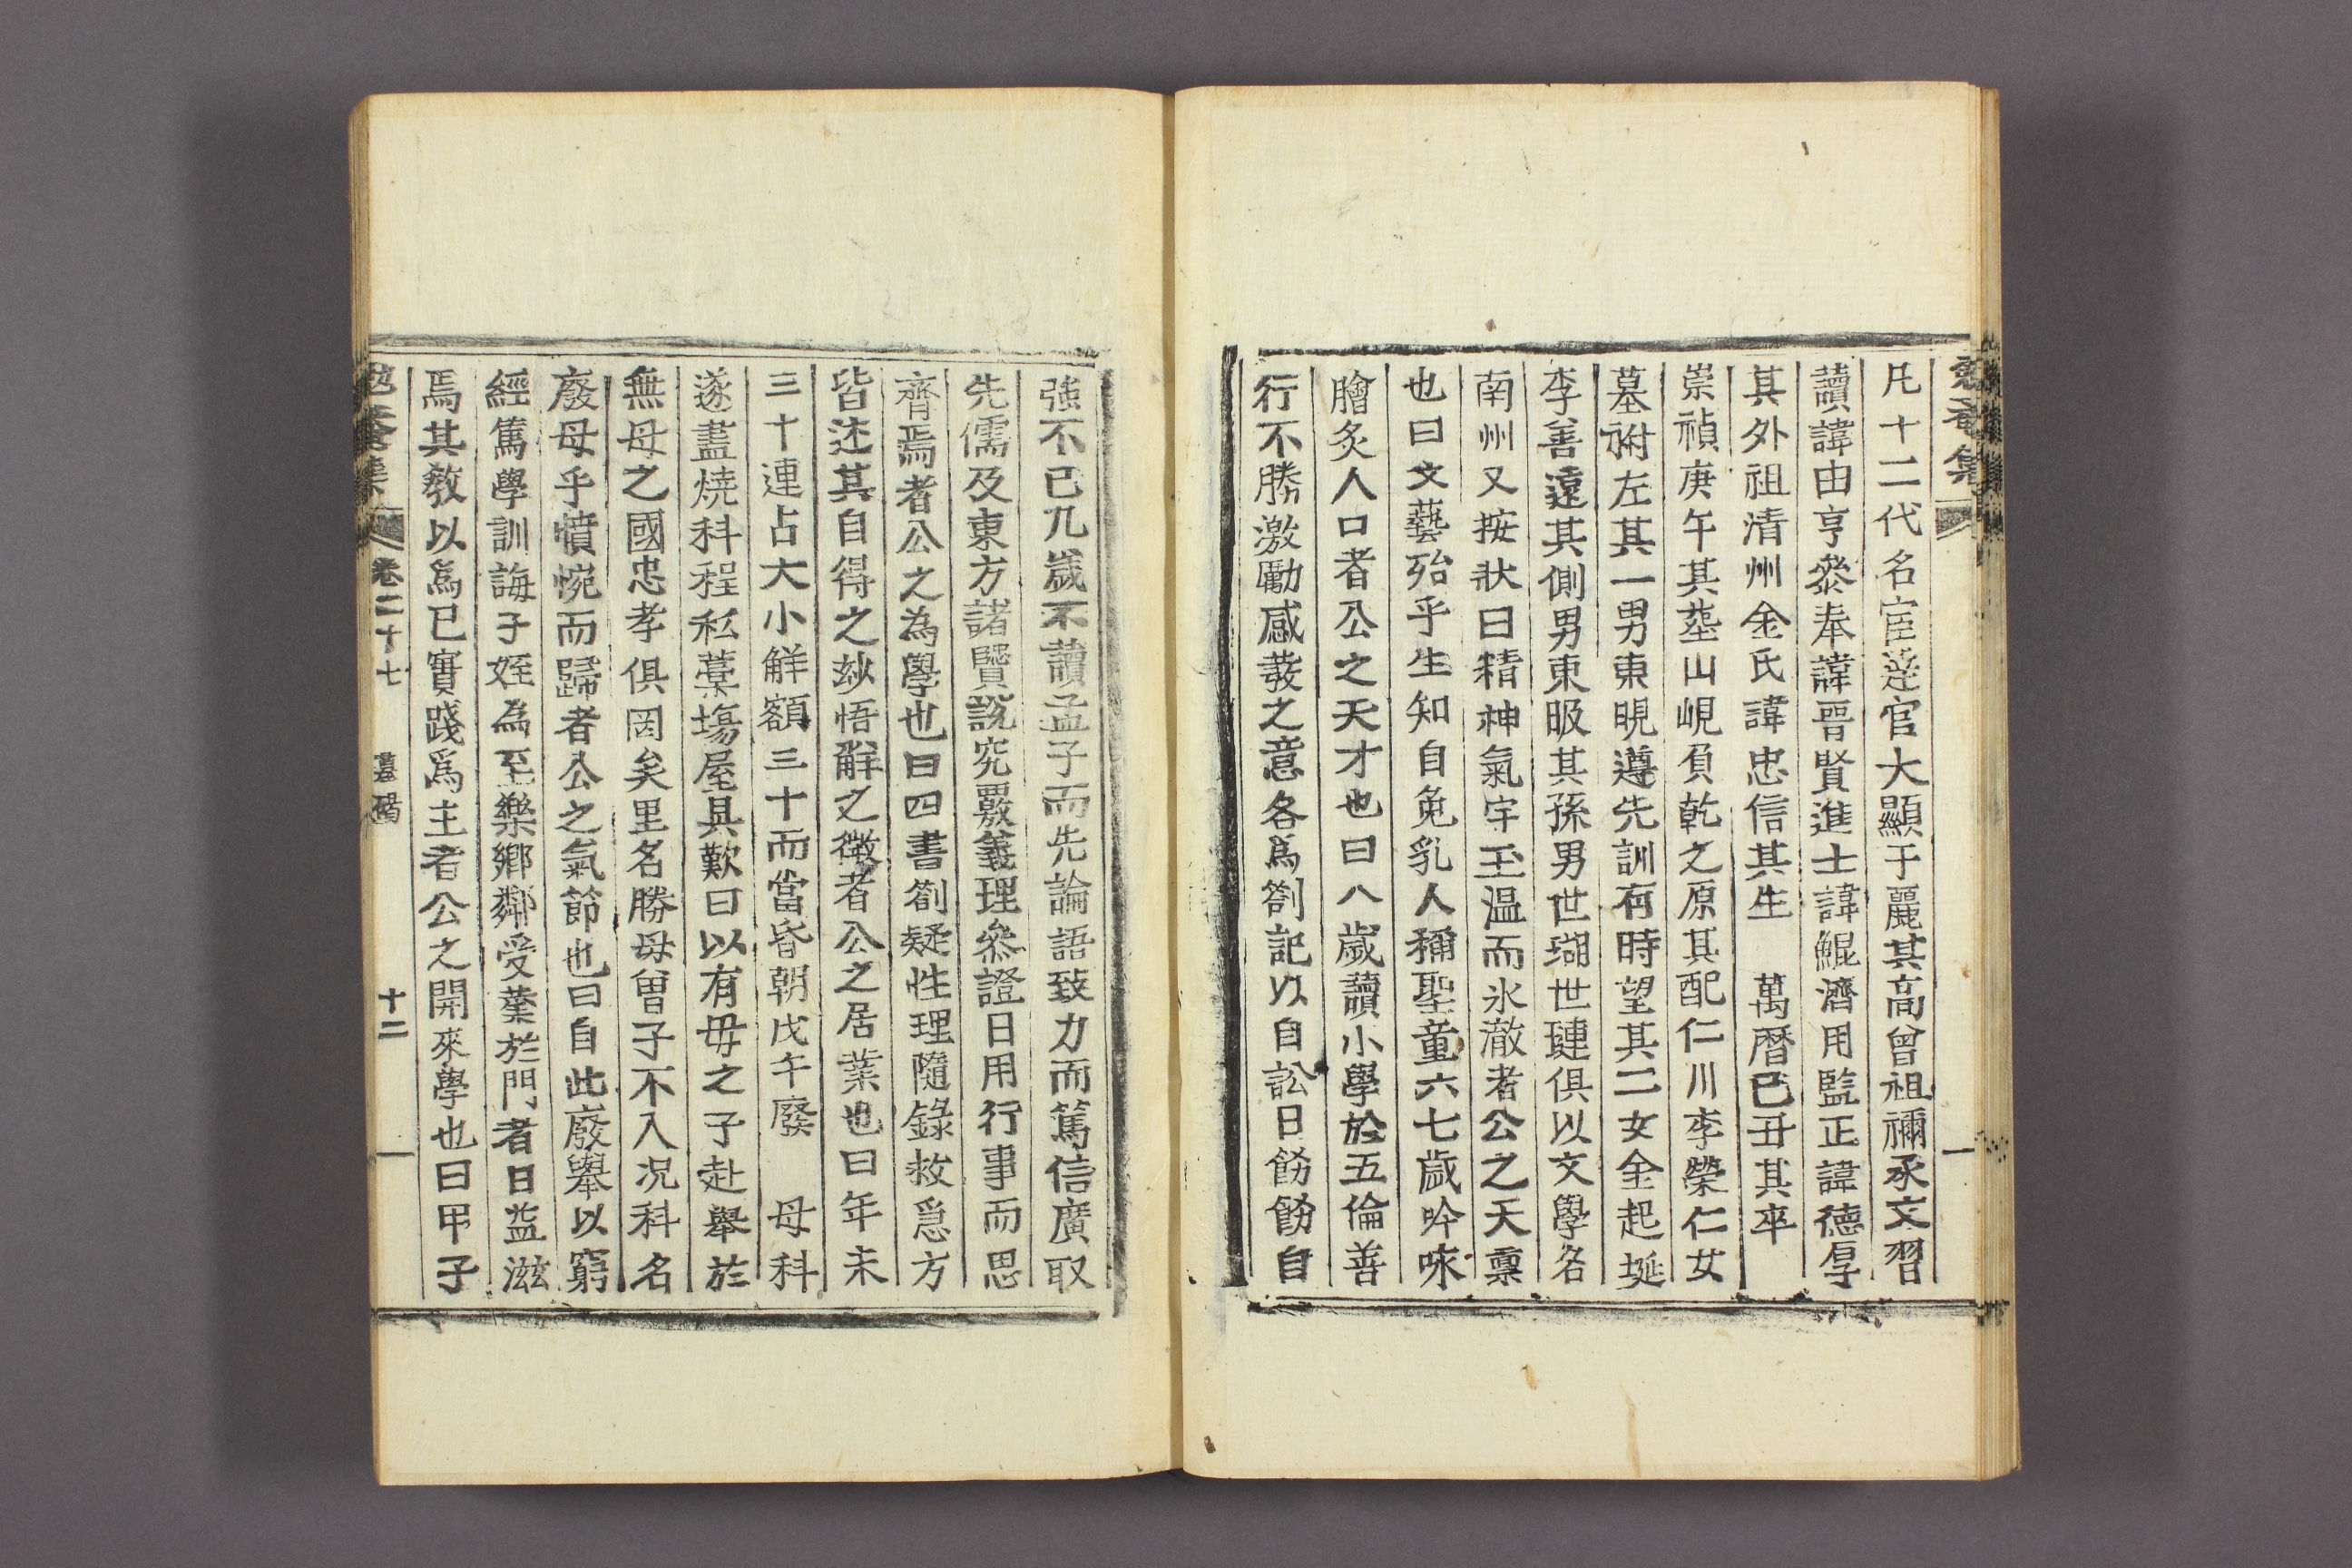 勉菴集
凡十二代名宦達官大顯于麗其高曾祖禰承文習
讀諱由亨叅奉諱晋賢進士諱鯤濟用監正諱德厚
其外祖清州金氏諱忠信其生　萬曆己丑其卒
崇禎庚午其葬山峴負乾之原其配仁川李榮仁女
墓祔左其一男東晛遵先訓有時望其二女金起埏
李善遠其側男東昄其孫男世瑚世璉俱以文學名
南州又按狀曰精神氣宇玉温而氷澈者公之天禀
也曰文藝殆乎生知自免乳人稱聖童六七歲吟咏
膾炙人口者公之天才也曰八歲讀小學於五倫善
行不勝激勵感發之意各爲劄記以自訟日飭飭自
強不已九歲不讀孟子而先論語致力而篤信廣取
先儒及東方諸賢說究覈義理叅證日用行事而思
齊焉者公之為學也曰四書劄疑性理隨錄救急方
皆述其自得之玅悟觧之徵者公之居業也曰年未
三十連占大小觧額三十而當昏朝戊午廢　母科
遂盡燒科程私藁塲屋具歎曰以有母之子赴舉於
無母之國忠孝俱罔矣里名勝母曾子不入况科名
廢母乎憤惋而歸者公之氣節也曰自此廢舉以窮
經篤學訓誨子姪為至樂鄉鄰受業於門者日益滋
焉其敎以爲已實踐爲主者公之開來學也曰甲子
勉菴集　卷二十七　墓碣　十二